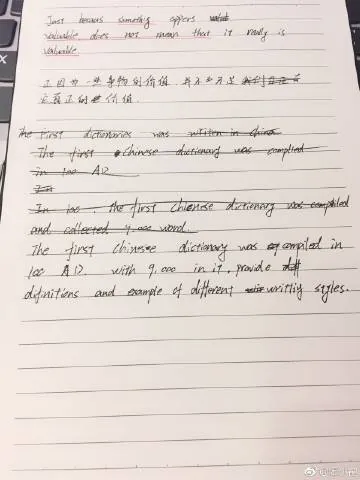 Just because something appears
valuable does not mean that it really is
valuable
正因为一些事物的价值，并不
它真正的价值.
The first dictionaries was written in china
The first Chinese dictionary was complied
in 100 AD
In
In 100, the first Chinese dictionary was compiled
and collected 9,000 word.
The first Chinese dictionary was compiled in
100 AD. with 9,000 in it, provide
definitions and example of different writtiy styles.